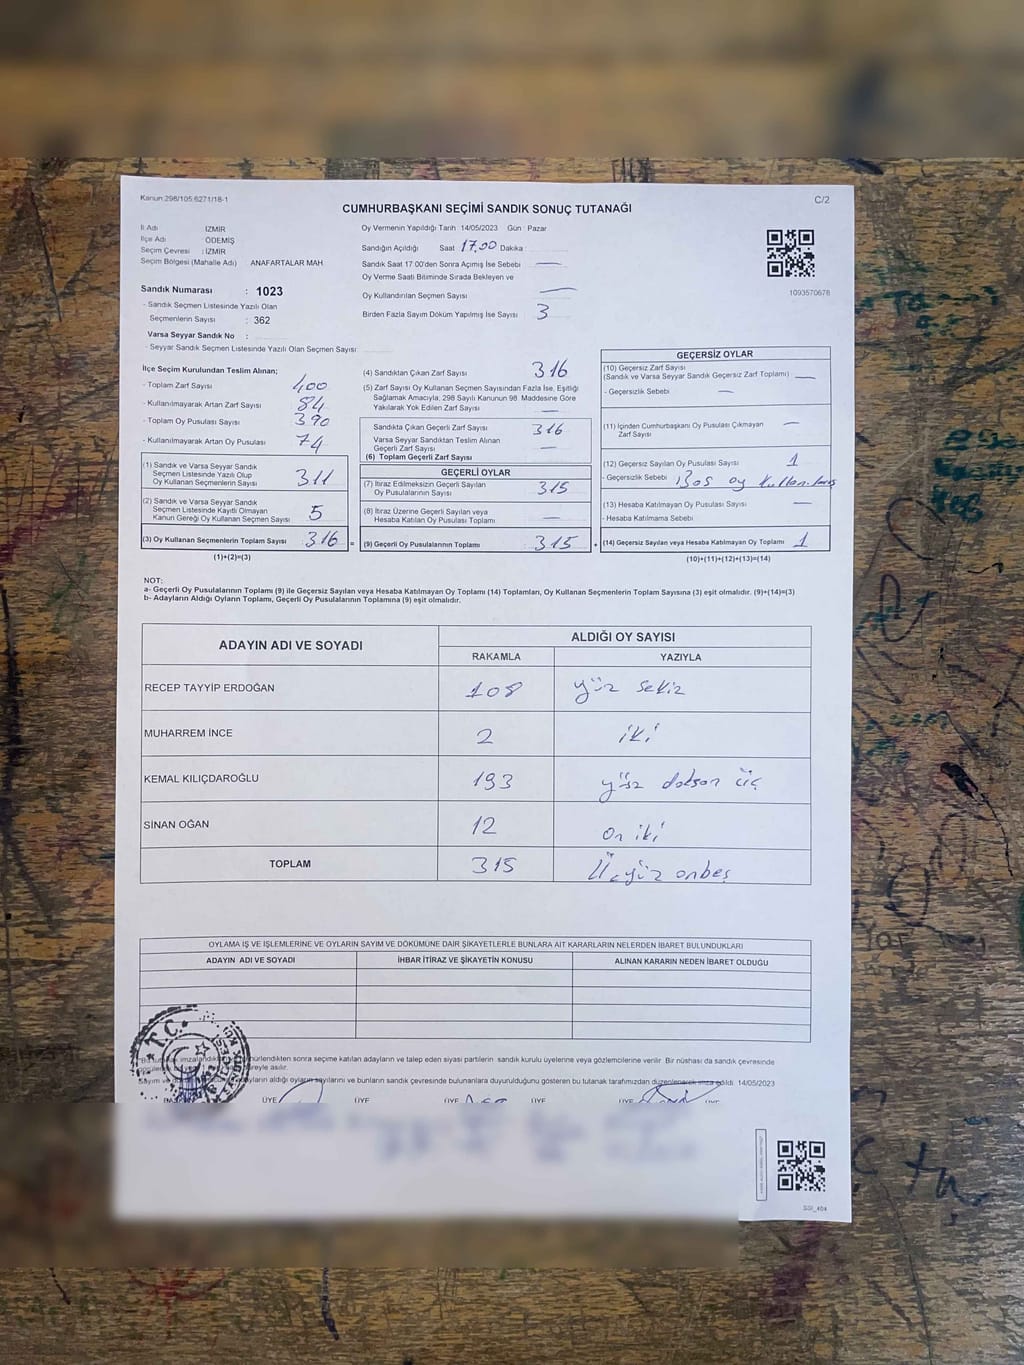 Kanun:298/105.6271/18-1
C/2
CUMHURBAŞKANI SEÇİMİ SANDIK SONUÇ TUTANAĞI
İl Adı İZMİR
İlçe Adı ÖDEMİŞ
Seçim Çevresi : İZMİR
Seçim Bölgesi (Mahalle Adı) ANAFARTALAR MAH.
Sandık Numarası : 1023
- Sandık Seçmen Listesinde Yazılı Olan
Seçmenlerin Sayısı : 362
Varsa Seyyar Sandık No :
- Seyyar Sandık Seçmen Listesinde Yazılı Olan Seçmen Sayısı:
Oy Vermenin Yapıldığı Tarih 14/05/2023 Gün : Pazar
Sandığın Açıldığı Saat 17.00 Dakika :
Sandık Saat 17:00'den Sonra Açımış İse Sebebi —
Oy Verme Saati Bitiminde Sırada Bekleyen ve
Oy Kullandırılan Seçmen Sayısı —
Birden Fazla Sayım Döküm Yapılmış İse Sayısı 3
1093570676
İlçe Seçim Kurulundan Teslim Alınan;
- Toplam Zarf Sayısı 400
- Kullanılmayarak Artan Zarf Sayısı 84
- Toplam Oy Pusulası Sayısı 390
- Kullanılmayarak Artan Oy Pusulası 74
(1) Sandık ve Varsa Seyyar Sandık
Seçmen Listesinde Yazılı Olup
Oy Kullanan Seçmenlerin Sayısı 311
(2) Sandık ve Varsa Seyyar Sandık
Seçmen Listesinde Kayıtlı Olmayan
Kanun Gereği Oy Kullanan Seçmen Sayısı 5
(3) Oy Kullanan Seçmenlerin Toplam Sayısı 316 =
(1)+(2)=(3)
(4) Sandıktan Çıkan Zarf Sayısı 316
(5) Zarf Sayısı Oy Kullanan Seçmen Sayısından Fazla İse, Eşitliği
Sağlamak Amacıyla; 298 Sayılı Kanunun 98. Maddesine Göre
Yakılarak Yok Edilen Zarf Sayısı —
Sandıkta Çıkan Geçerli Zarf Sayısı 316
Varsa Seyyar Sandıktan Teslim Alınan
Geçerli Zarf Sayısı —
(6) Toplam Geçerli Zarf Sayısı
GEÇERLİ OYLAR
(7) İtiraz Edilmeksizin Geçerli Sayılan
Oy Pusulalarının Sayısı 315
(8) İtiraz Üzerine Geçerli Sayılan veya
Hesaba Katılan Oy Pusulası Toplamı —
(9) Geçerli Oy Pusulalarının Toplamı 315 +
GEÇERSİZ OYLAR
(10) Geçersiz Zarf Sayısı
(Sandık ve Varsa Seyyar Sandık Geçersiz Zarf Toplamı) —
- Geçersizlik Sebebi —
(11) İçinden Cumhurbaşkanı Oy Pusulası Çıkmayan
Zarf Sayısı —
(12) Geçersiz Sayılan Oy Pusulası Sayısı 1
- Geçersizlik Sebebi Boş oy kullanılmış
(13) Hesaba Katılmayan Oy Pusulası Sayısı —
- Hesaba Katılmama Sebebi
(14) Geçersiz Sayılan veya Hesaba Katılmayan Oy Toplamı 1
(10)+(11)+(12)+(13)=(14)
NOT:
a- Geçerli Oy Pusulalarının Toplamı (9) ile Geçersiz Sayılan veya Hesaba Katılmayan Oy Toplamı (14) Toplamları, Oy Kullanan Seçmenlerin Toplam Sayısına (3) eşit olmalıdır. (9)+(14)=(3)
b- Adayların Aldığı Oyların Toplamı, Geçerli Oy Pusulalarının Toplamına (9) eşit olmalıdır.
ADAYIN ADI VE SOYADI ALDIĞI OY SAYISI
RAKAMLA YAZIYLA
RECEP TAYYİP ERDOĞAN 108 yüz sekiz
MUHARREM İNCE 2 iki
KEMAL KILIÇDAROĞLU 193 yüz doksan üç
SİNAN OĞAN 12 on iki
TOPLAM 315 Üçyüz onbeş
OYLAMA İŞ VE İŞLEMLERİNE VE OYLARIN SAYIM VE DÖKÜMÜNE DAİR ŞİKAYETLERLE BUNLARA AİT KARARLARIN NELERDEN İBARET BULUNDUKLARI
ADAYIN ADI VE SOYADI İHBAR İTİRAZ VE ŞİKAYETİN KONUSU ALINAN KARARIN NEDEN İBARET OLDUĞU
T.C.
sonra seçime katılan adayların ve talep eden siyasi partilerin sandık kurulu üyelerine veya gözlemcilerine verilir. Bir nüshası da sandık çevresinde
asılır.
aldığı oyların sayılarını ve bunların sandık çevresinde bulunanlara duyurulduğunu gösteren bu tutanak tarafımızdan düzenlenerek imza edildi. 14/05/2023
ÜYE ÜYE ÜYE ÜYE ÜYE
SSI_404